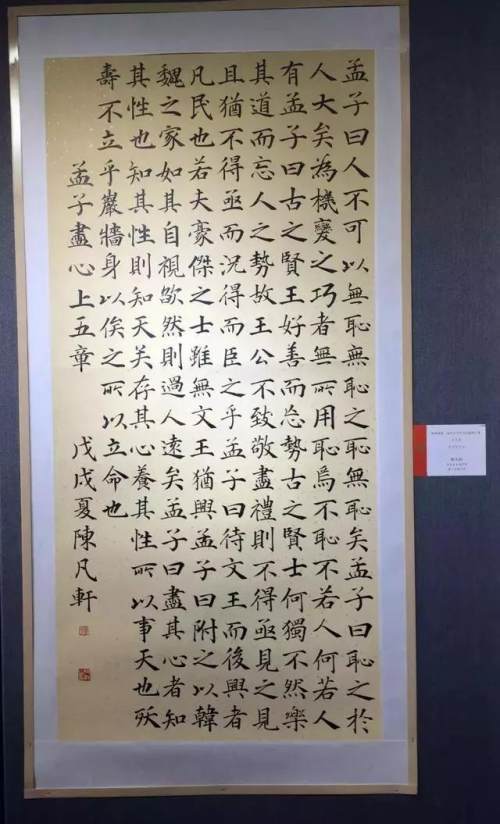 孟子曰人不可以無恥無恥之恥無恥矣孟子曰恥之於
人大矣為機變之巧者無所用恥焉不恥不若人何若人
有孟子曰古之賢王好善而忘勢古之賢士何獨不然樂
其道而忘人之勢故王公不致敬盡禮則不得亟見之見
且猶不得亟而況得而臣之乎孟子曰待文王而後興者
凡民也若夫豪傑之士雖無文王猶興孟子曰附之以韓
魏之家如其自視欿然則過人遠矣孟子曰盡其心者知
其性也知其性則知天矣存其心養其性所以事天也殀
壽不立乎巖牆身以俟之所以立命也
孟子盡心上五章 戊戌夏陳凡軒